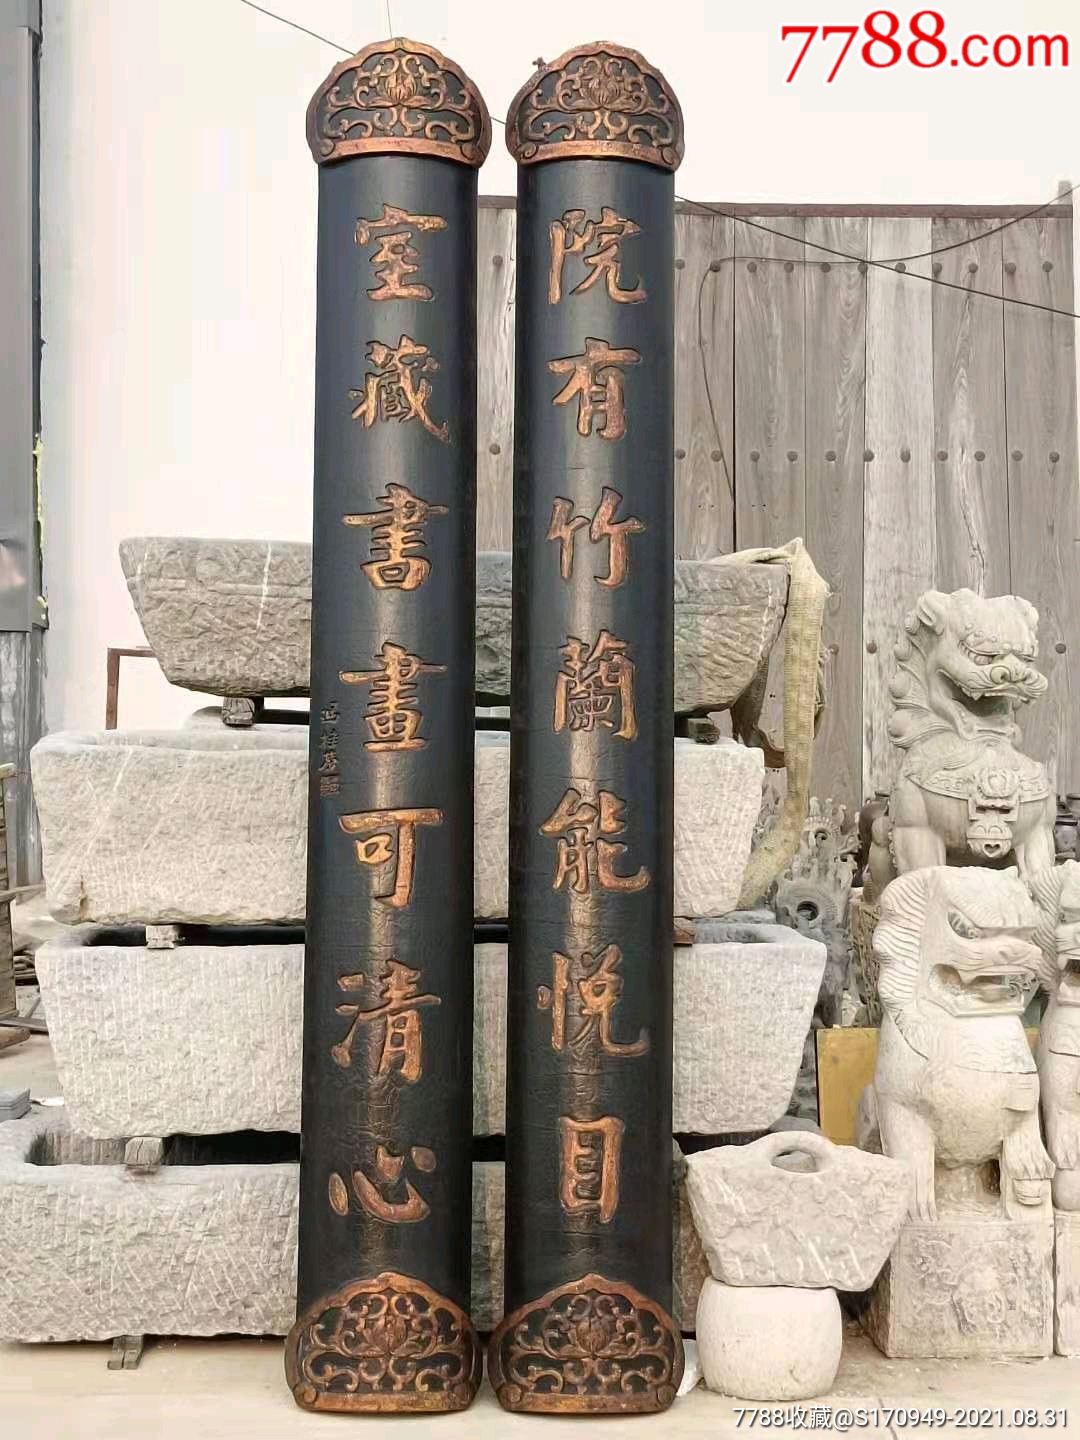 7788.com
院有竹蘭能悦目
室藏書畫可清心
7788收藏@S170949-2021.08.31